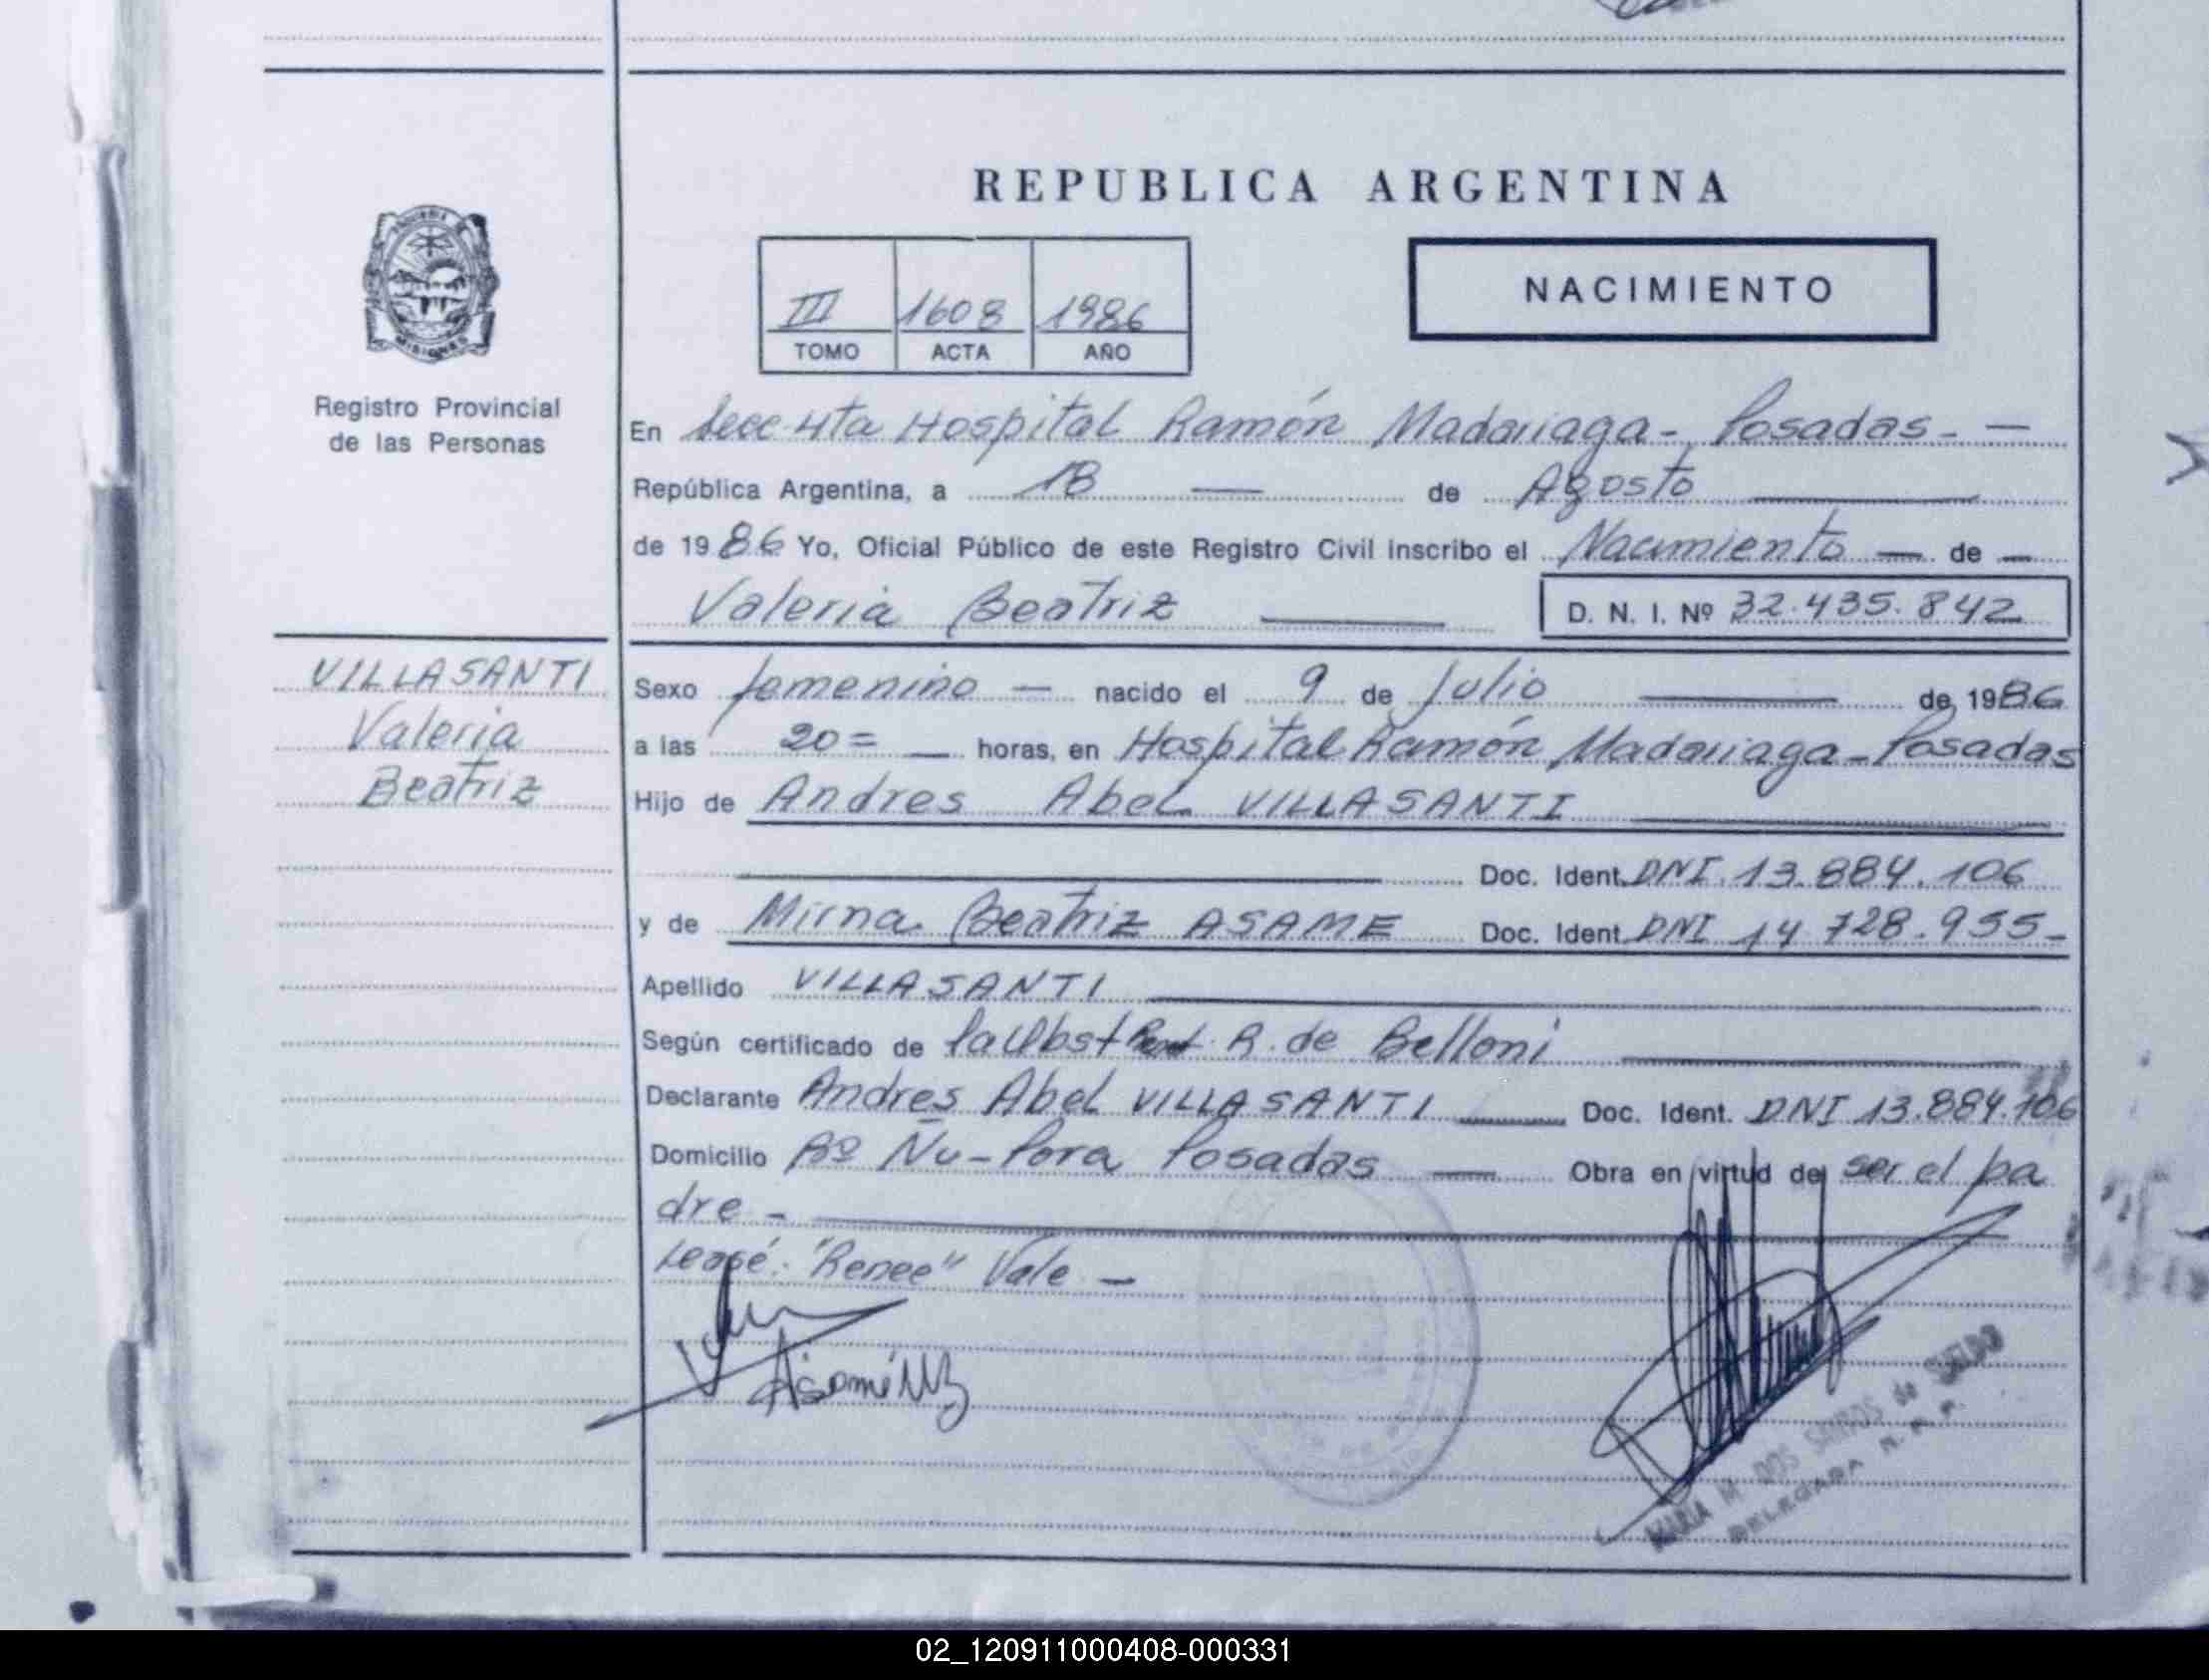 REPUBLICA ARGENTINA
III 1608 1986
TOMO ACTA AÑO
NACIMIENTO
MISIONES
Registro Provincial
de las Personas
En Secc 4ta Hospital Ramón Madariaga - Posadas - —
República Argentina, a 18 — de Agosto
de 1986 Yo, Oficial Público de este Registro Civil inscribo el Nacimiento — de —
Valeria Beatriz
D. N. I. Nº 32.435.842
VILLASANTI
Valeria
Beatriz
Sexo femenino — nacido el 9 de Julio de 1986
a las 20= — horas, en Hospital Ramón Madariaga - Posadas
Hijo de Andres Abel VILLASANTI
Doc. Ident. DNI. 13.884.106
y de Mirna Beatriz ASAME Doc. Ident. DNI 14 728.955-
Apellido VILLASANTI
Según certificado de la Obst R. de Belloni
Declarante Andres Abel VILLASANTI Doc. Ident. DNI 13.884.106
Domicilio Bº Ñu-Pora Posadas — Obra en virtud de ser el pa
dre -
Leasé: "Renee" Vale —
MARIA M. DOS SANTOS de SUELDO
DELEGADA R. P. P.
02_120911000408-000331